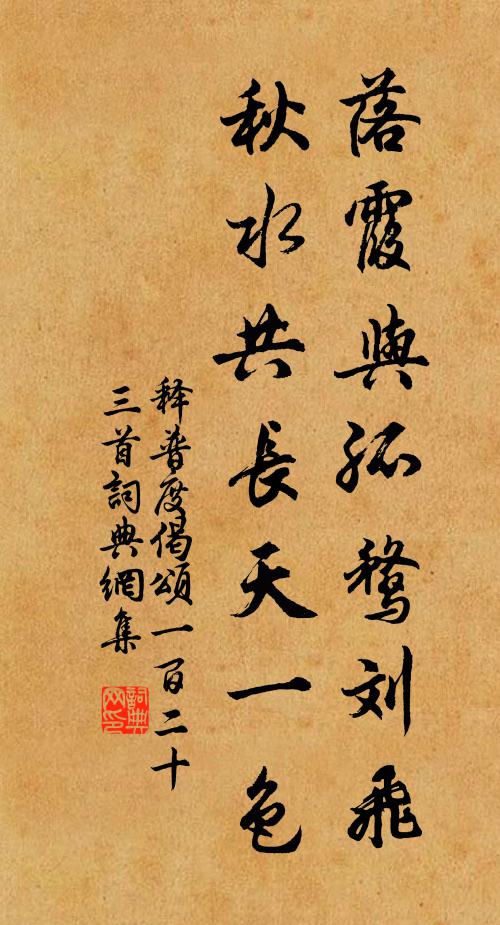 落霞與孤鶩刘飛
秋水共長天一色
释普度偈頌一百二十
三首詞典網集
詞典
网印